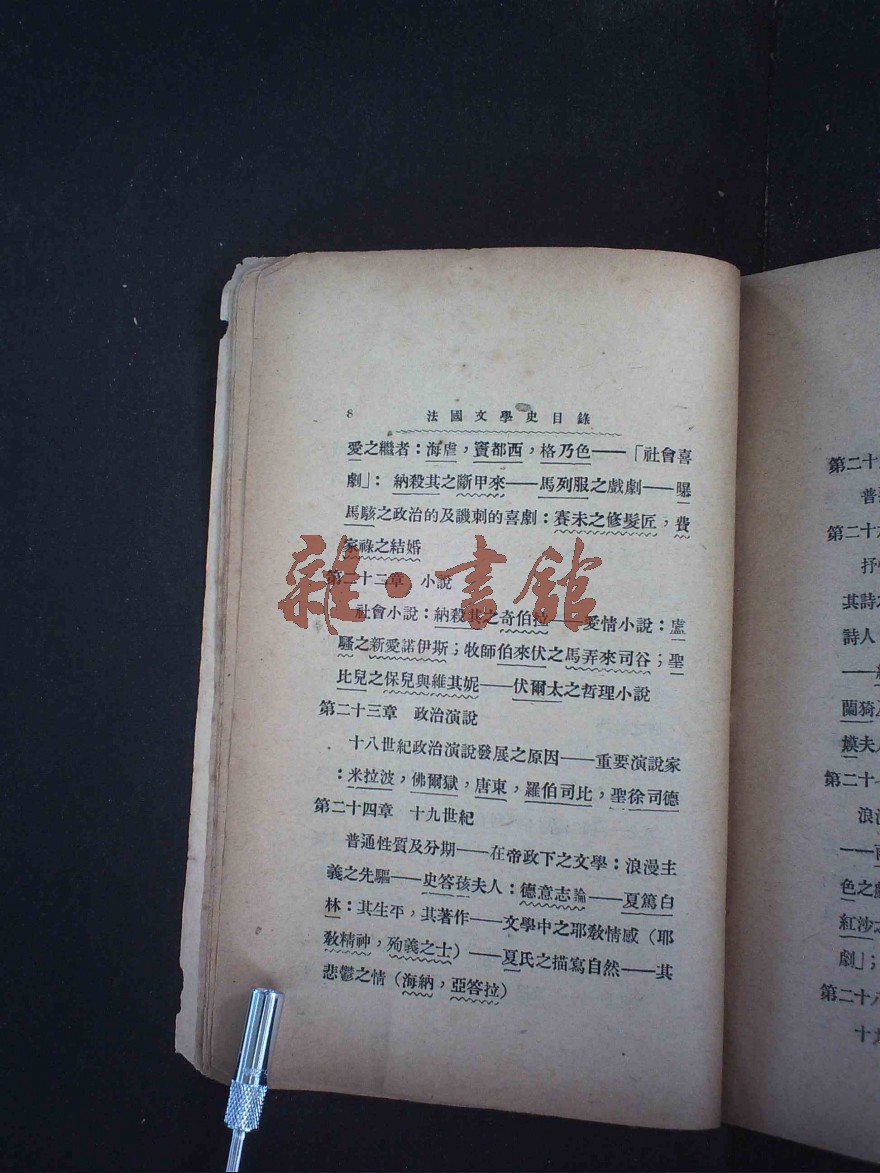 8 法國文學史目錄
愛之繼者：海虐，竇都西，格乃色——「社會喜
劇」：納殺其之斷甲來——馬列服之戲劇——曝
馬駭之政治的及譏刺的喜劇：賽未之修髮匠，費
家祿之結婚
第二十二章 小說
社會小說：納殺其之奇伯拉——愛情小說：盧
騷之新愛諾伊斯；牧師伯來伏之馬弄來司谷；聖
比兒之保兒與維其妮——伏爾太之哲理小說
第二十三章 政治演說
十八世紀政治演說發展之原因——重要演說家
：米拉波，佛爾獄，唐東，羅伯司比，聖徐司德
第二十四章 十九世紀
普通性質及分期——在帝政下之文學：浪漫主
義之先驅——史答孩夫人：德意志論——夏篤白
林：其生平，其著作——文學中之耶敎情感（耶
敎精神，殉義之士）——夏氏之描寫自然——其
悲鬱之情（海納，亞答拉）
雜·書館
第二十
普
第二十
抒
其詩
詩人
——
蘭猗
嫫夫人
第二十七
浪
——
色之
紅沙
劇」；
第二十八
十九